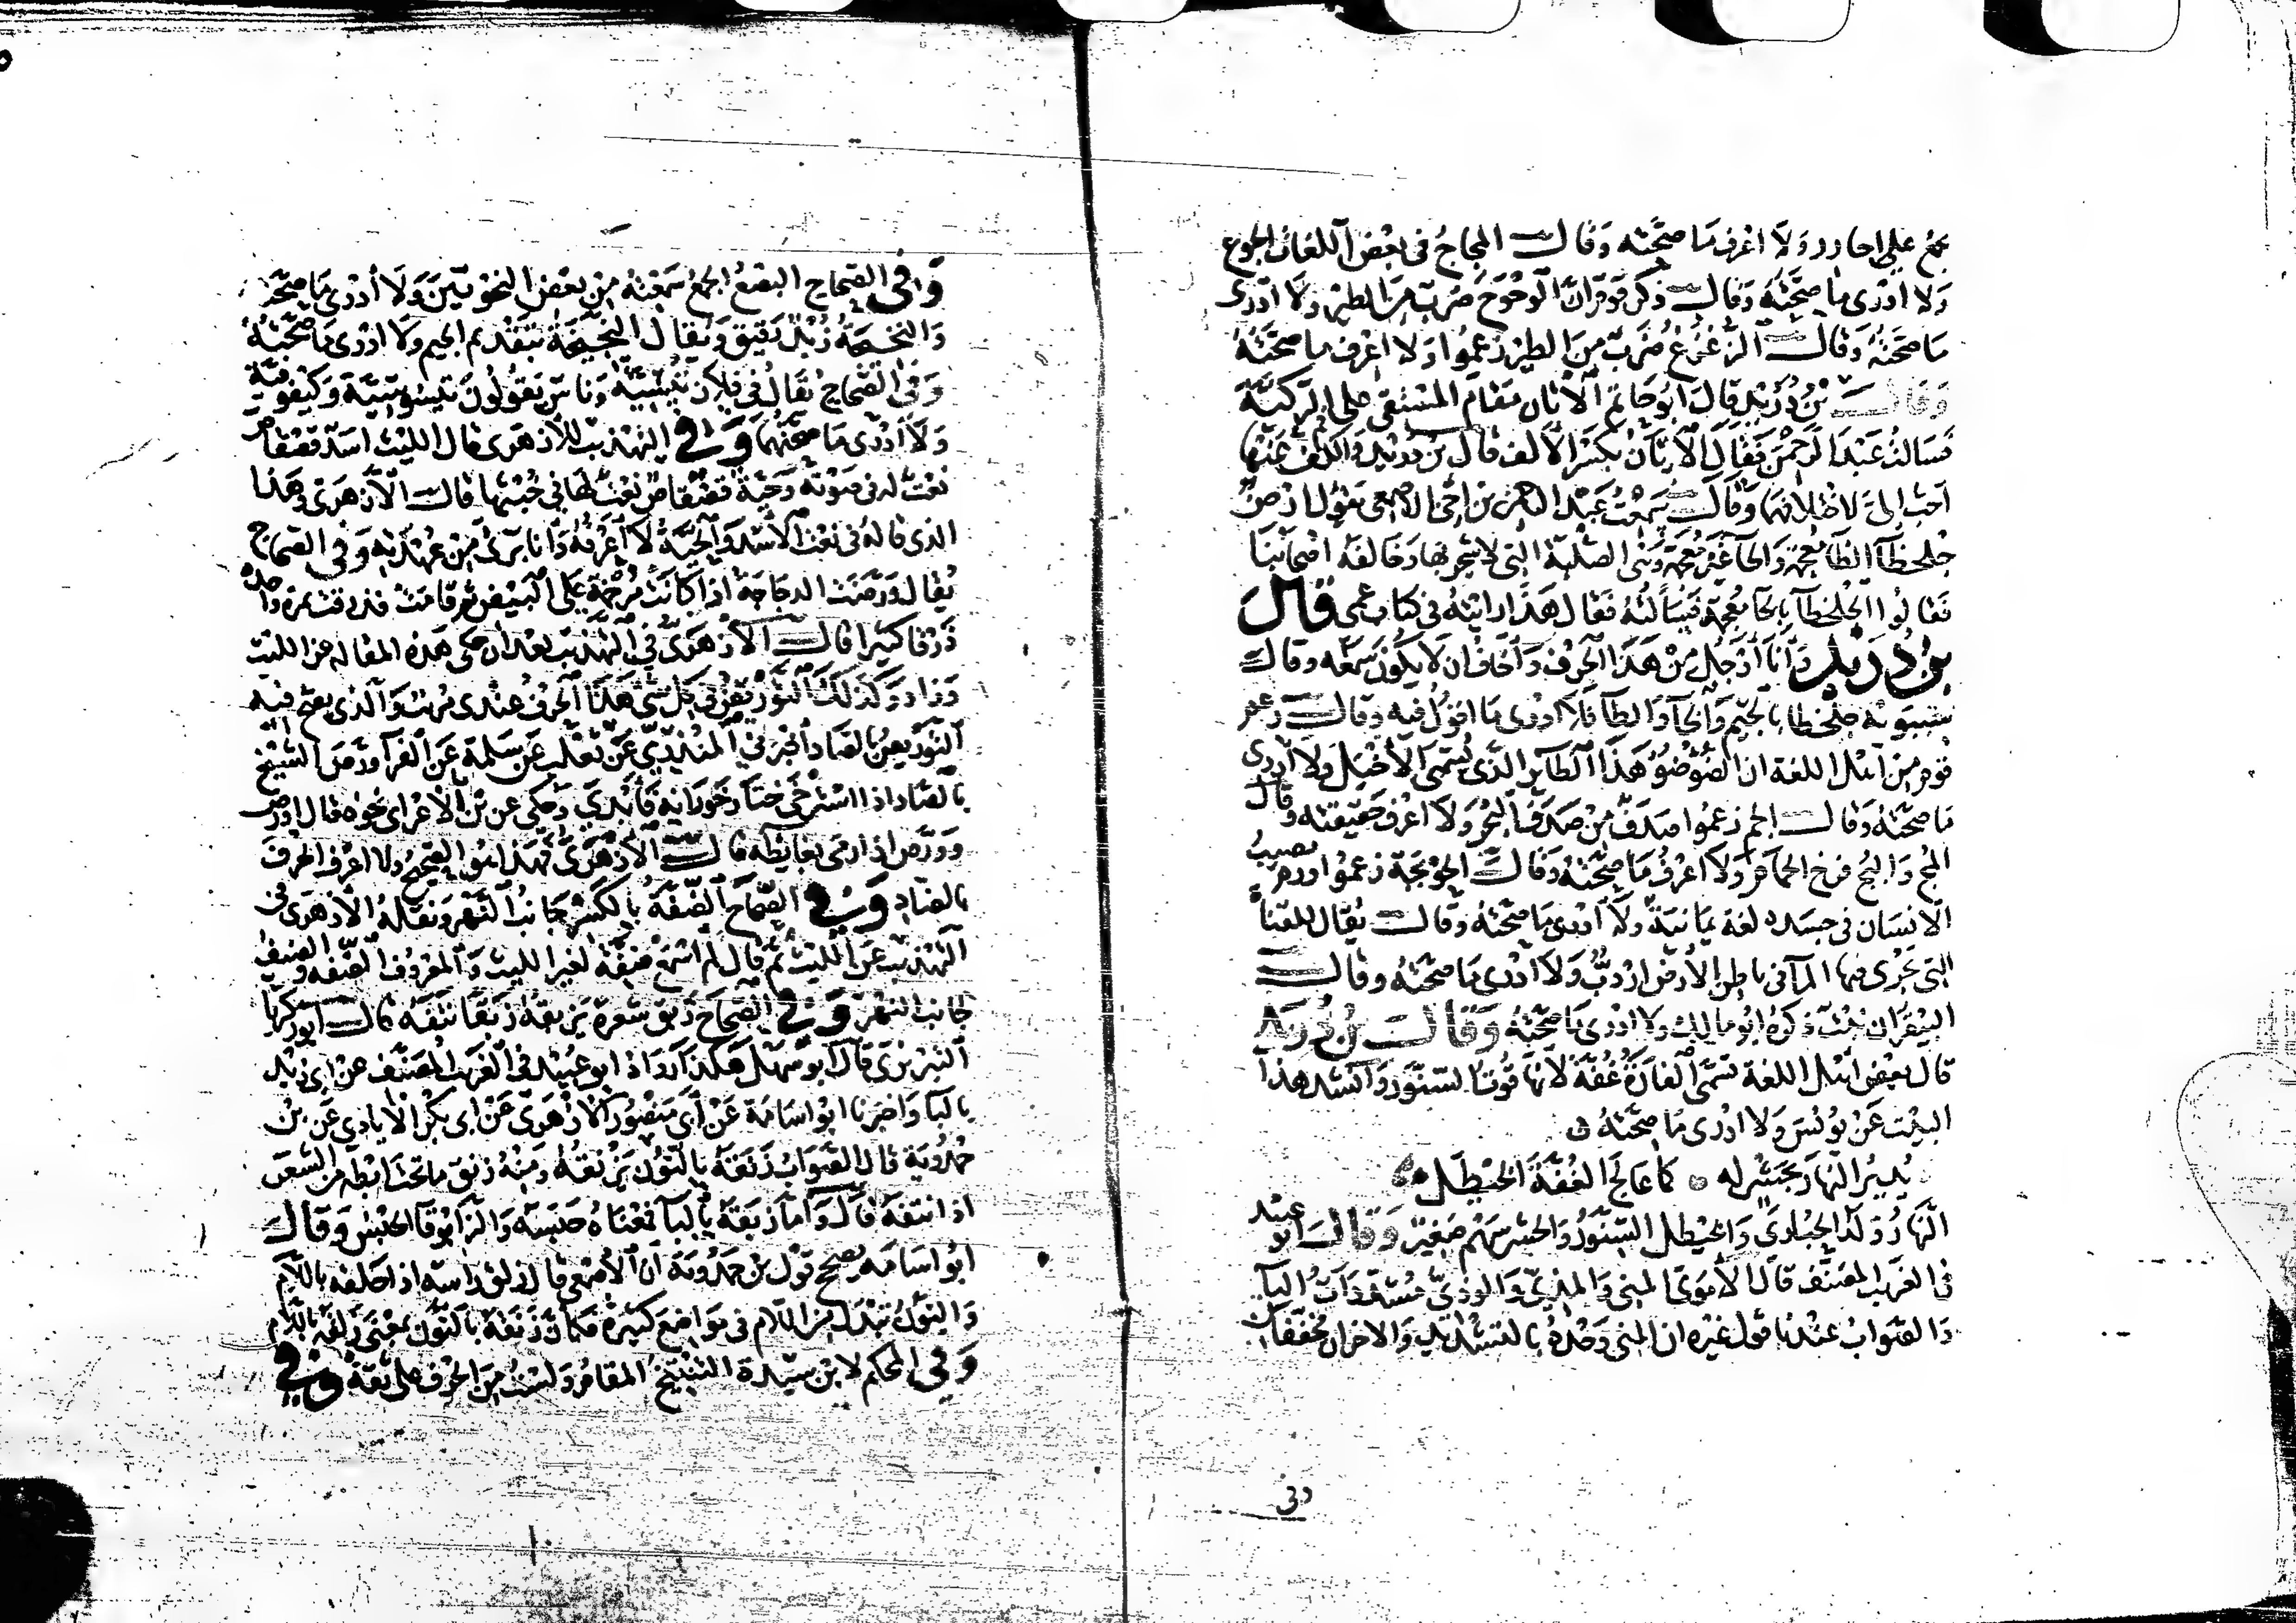 يجمع على اجارد ولا اعرف ما صحته وقال المجاج في بعض اللغات الجوع
ولا ادرى ما صحته وقال ذكر قوم ان الوحوح ضرب من الطير ولا ادرى
ما صحته وقال الزغزغ ضرب من الطير زعموا ولا اعرف ما صحته
وقال بن دريد قال ابو حاتم الاتان مقام المستقى على الركية
فسالت عبد الرحمن فقال الاتان بكسر الالف قال بن دريد والكف عنها
احب الى لاختلافهما وقال سمعت عبد الرحمن بن اخى الاصمعى يقول ارض
جلحظا الظا معجمة والحا غير معجمة وهى الصلبة التى لا شجر بها وخالفه اصحابنا
فقالوا الجلخظا بالخا معجمة فسالته فقال هذا رايته في كتاب عمى قال
بن دريد وانا اوجل من هذا الحرف واخاف ان لا يكون سمعه وقال
سيبويه جلخطا بالجيم والخا والطا فلا ادرى ما اقول فيه وقال زعم
قوم من اهل اللغة ان الضوضو هذا الطاير الذى يسمى الاخيل ولا ادرى
ما صحته وقال الجم زعموا صدف من صدف البحر ولا اعرف حقيقته وقال
المج والبج فرخ الحمام ولا اعرف ما صحته وقال الحوبجة زعموا ورم يصيب
الانسان في جسده لغة يمانية ولا ادرى ما صحته وقال يقال للقناة
التى يجرى فيها الما في باطن الارض اردب ولا ادرى ما صحته وقال
اليقران نبت ذكره ابو مالك ولا ادرى ما صحته وقال بن دريد
قال بعض اهل اللغة تسمى الفارة غفة لانها قوت السنور وانشد هذا
البيت عن يونس ولا ادرى ما صحته
يدير النهار بجشر له كما عالج الغفة الخيطل
النهار ولد الحبارى والخيطل السنور والحشر سهم صغير وقال ابو عبيد
في الغريب المصنف قال الاموى المنى والمذى والودى مشددات اليا
والصواب عندنا قول غيره ان المنى وحده بالتشديد والاخران مخففان
وفى
وفى الصحاح البصع الجمع سمعته من بعض النحويين ولا أدرى ما صحته
والنخيجة زبد رقيق ويقال النجيخة بتقديم الجيم ولا ادرى ما صحته
وفى الصحاح يقال في فلان تيسية وناس يقولون تيسوسية وكيفوفية
ولا أدرى ما صحتهما وفى التهذيب للازهرى قال الليث اسد قصقاص
نعت له في صوته وحية قصقاص نعت لها في خبثها قال الازهرى وهذا
الذى قاله في نعت الاسد والحية لا اعرفه وانا برى من عهدته وفى الصحاح
يقال ورصت الدجاجة اذا كانت مرخمة على البيض ثم قامت فذرقت بمرة واحدة
ذرقا كثيرا قال الازهرى في التهذيب بعد ان حكى هذه المقالة عن الليث
وزاد وكذلك التوريص في كل شى هذا الحرف عندى مريب والذى يصح فيه
التوريص بالصاد أخبرنى المنذرى عن ثعلب عن سلمة عن الفرا ورص الشيخ
بالصاد اذا استرخى حتار خورانه فأبدى وحكى عن بن الاعرابى نحوه قال اورص
وورص اذا رمى بغايطه قال الازهرى فهذا هو الصحيح ولا اعرف الحرف
بالضاد وفى الصحاح الضفة بالكسر جانب النهر ونقله الازهرى في
التهذيب عن الليث ثم قال لم اسمع ضفة لغير الليث والمعروف الضفة والضيف
لجانب النهر وفى الصحاح زبق شعره يزبقه زبقا نتفه قال ابو زكريا
التبريزى قال ابو سهل هكذا رواه ابو عبيد في الغريب المصنف عن ابى زيد
بالبا واخبرنا ابو اسامة عن أبى منصور الازهرى عن ابى بكر الايادى عن بن
حمدوية قال الصواب زنقه بالنون يزنقه ومنه زنق ما تحت ابطه من الشعر
اذا نتفه قال واما زبقه بالبا فمعناه حبسه والزابوقا الحبس وقال
ابو اسامه يصحح قول بن حمدوية ان الاصمعى قال زلق راسه اذا حلقه باللام
والنون تبدل من اللام في مواضع كثيرة فكان زنقه بالنون بمعنى زلقه باللام
وفى المحكم لابن سيدة التنبيخ المقامر ولست من الحرف على ثقة وفى